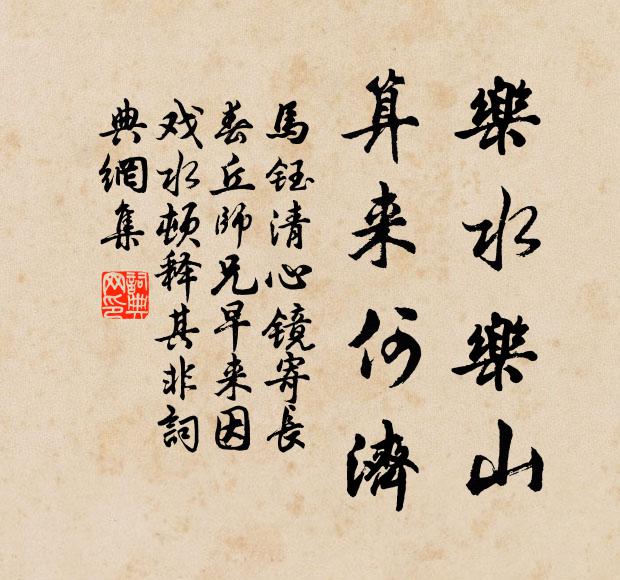 樂水樂山
算来何濟
馬鈺清心镜寄長
春丘師兄早来因
戏水頓释其非詞
典網集
詞典
网印